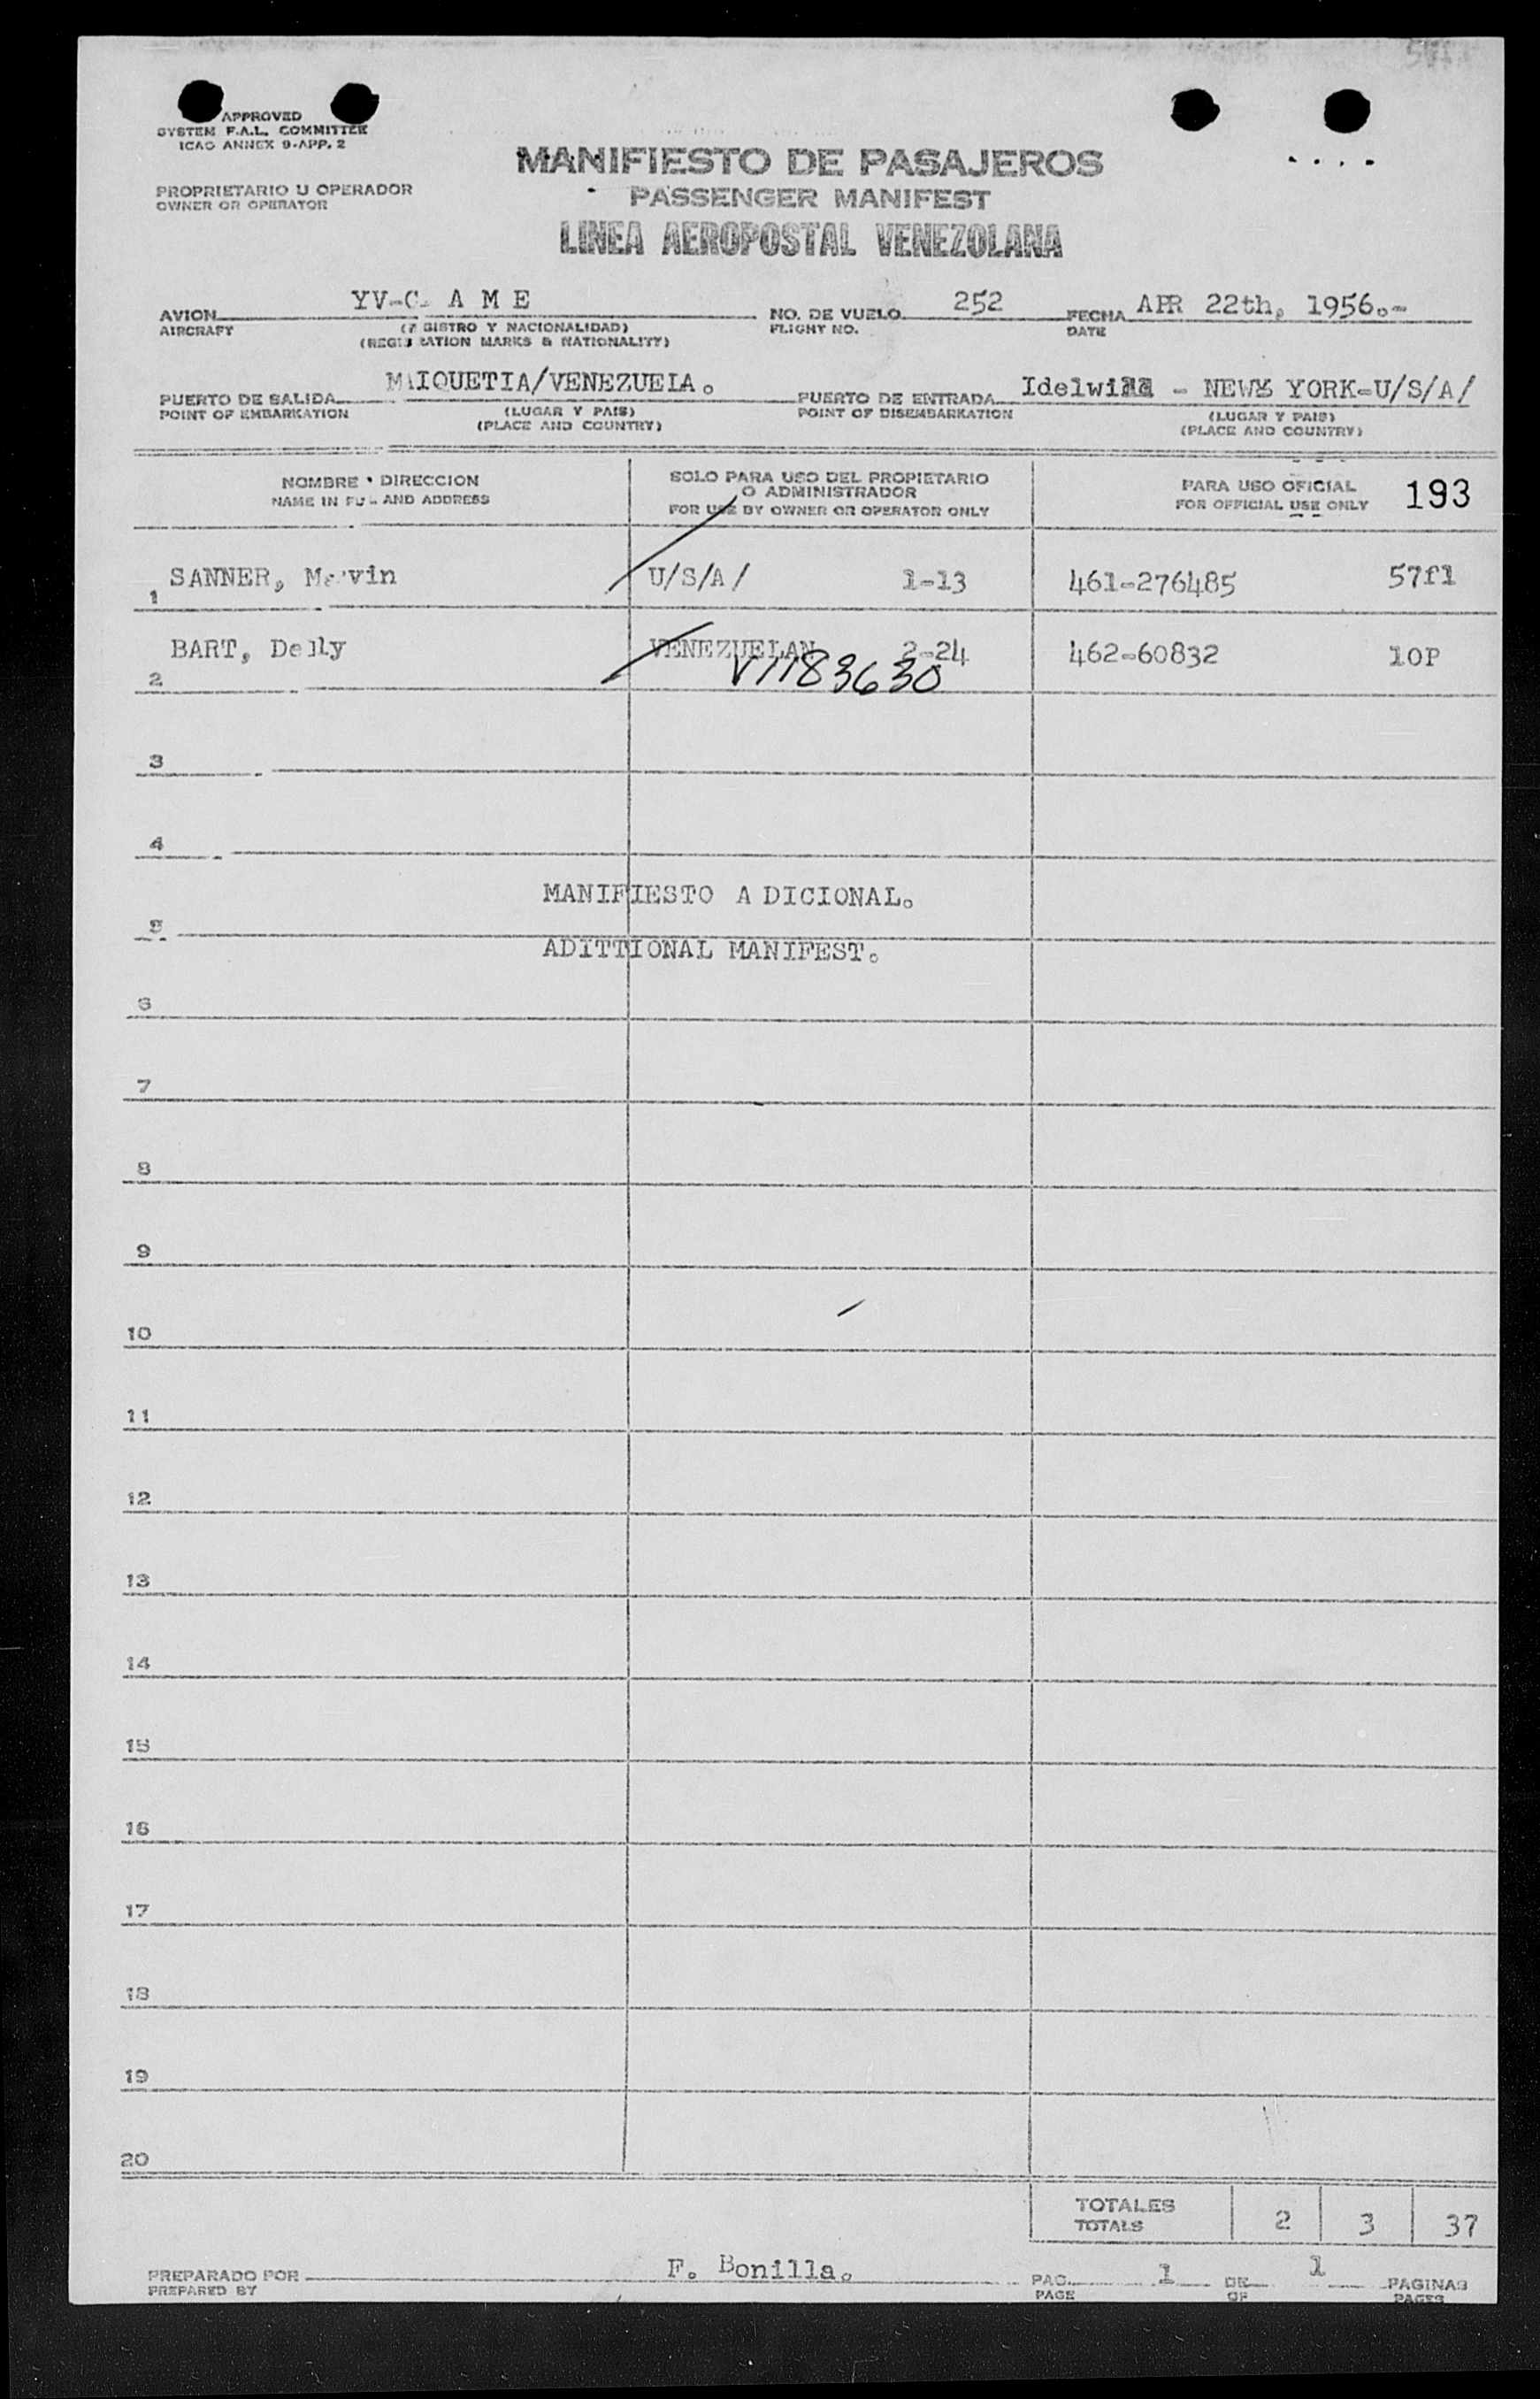 APPROVED
SYSTEM F.A.L. COMMITTEE
ICAO ANNEX 9-APP. 2
MANIFIESTO DE PASAJEROS
PROPRIETARIO U OPERADOR
OWNER OR OPERATOR
PASSENGER MANIFEST
LINEA AEROPOSTAL VENEZOLANA
AVION YV-C- A M E NO. DE VUELO 252 FECHA APR 22th, 1956.-
AIRCRAFT (REGISTRO Y NACIONALIDAD) FLIGHT NO. DATE
(REGISTRATION MARKS & NATIONALITY)
PUERTO DE SALIDA MAIQUETIA/VENEZUELA. PUERTO DE ENTRADA Idelwild - NEW YORK-U/S/A/
POINT OF EMBARKATION (LUGAR Y PAIS) POINT OF DISEMBARKATION (LUGAR Y PAIS)
(PLACE AND COUNTRY) (PLACE AND COUNTRY)
NOMBRE Y DIRECCION SOLO PARA USO DEL PROPIETARIO PARA USO OFICIAL 193
NAME IN FULL AND ADDRESS O ADMINISTRADOR FOR OFFICIAL USE ONLY
FOR USE BY OWNER OR OPERATOR ONLY
1 SANNER, Marvin U/S/A/ 1-13 461-276485 57fl
2 BART, Delly VENEZUELAN 2-24 462-60832 10P
V1183630
3
4
MANIFIESTO A DICIONAL.
5
ADITTIONAL MANIFEST.
6
7
8
9
10
11
12
13
14
15
16
17
18
19
20
TOTALES 2 3 37
TOTALS
PREPARADO POR F. Bonilla. PAG. 1 DE 1 PAGINAS
PREPARED BY PAGE OF PAGES